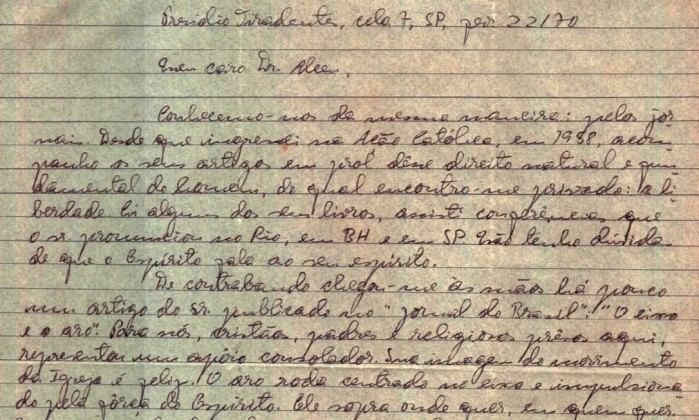 Presídio Tiradentes, cela 7, SP, 22/70
Meu caro Dr. Alceu,
Conhecemo-nos da mesma maneira: pelos jor
nais. Desde que ingressei na Ação Católica, em 1958, acom
panho os seus artigos em prol dêsse direito natural e fun
damental do homem, do qual encontro-me privado: a li
berdade. Li alguns dos seus livros, assisti conferências que
o sr. pronunciou no Rio, em BH e em SP. Não tenho dúvida
de que o Espírito fala ao seu espírito.
De contrabando chegou-me às mãos há pouco
um artigo do sr. publicado no "Jornal do Brasil": "O eixo
e o aro". Para nós, cristãos, padres e religiosos prêsos aqui,
representou um apoio consolador. Sua imagem do movimento
da Igreja é feliz. O aro roda centrado no eixo e impulsiona
do pela fôrça do Espírito. Ele sopra onde quer, em quem quer